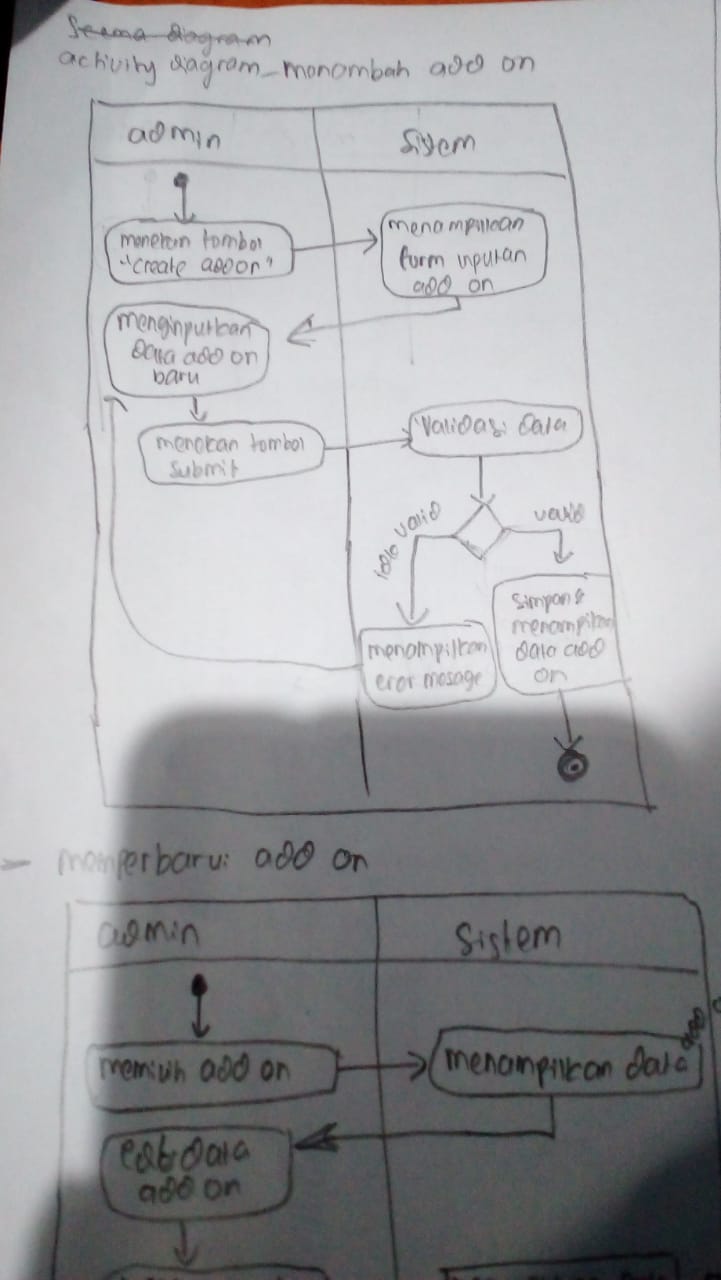 activity diagram_menambah add on
admin
Sistem
menekan tombol
"create add on"
menampilkan
form inputan
add on
menginputkan
data add on
baru
menekan tombol
submit
Validasi data
tidak valid
valid
menampilkan
eror mesage
Simpan &
menampilkan
data add
on
- memperbarui add on
admin
Sistem
memilih add on
menampilkan data
add on
edit data
add on